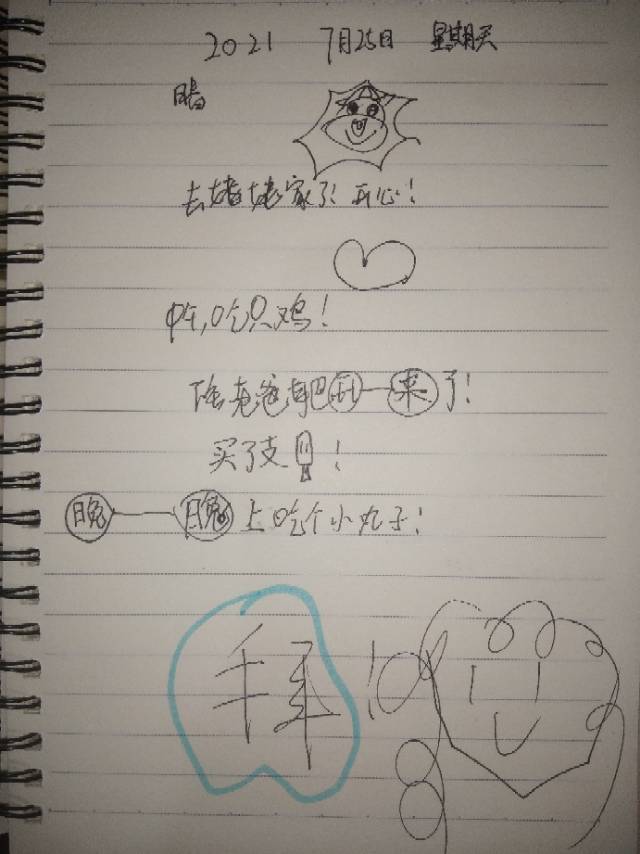 2021 7月25日 星期天
晴
去姥姥家了! 开心!
中午,吃只鸡!
老爸 来了!
买了支 !
晚 晚上吃个小丸子!
拜!